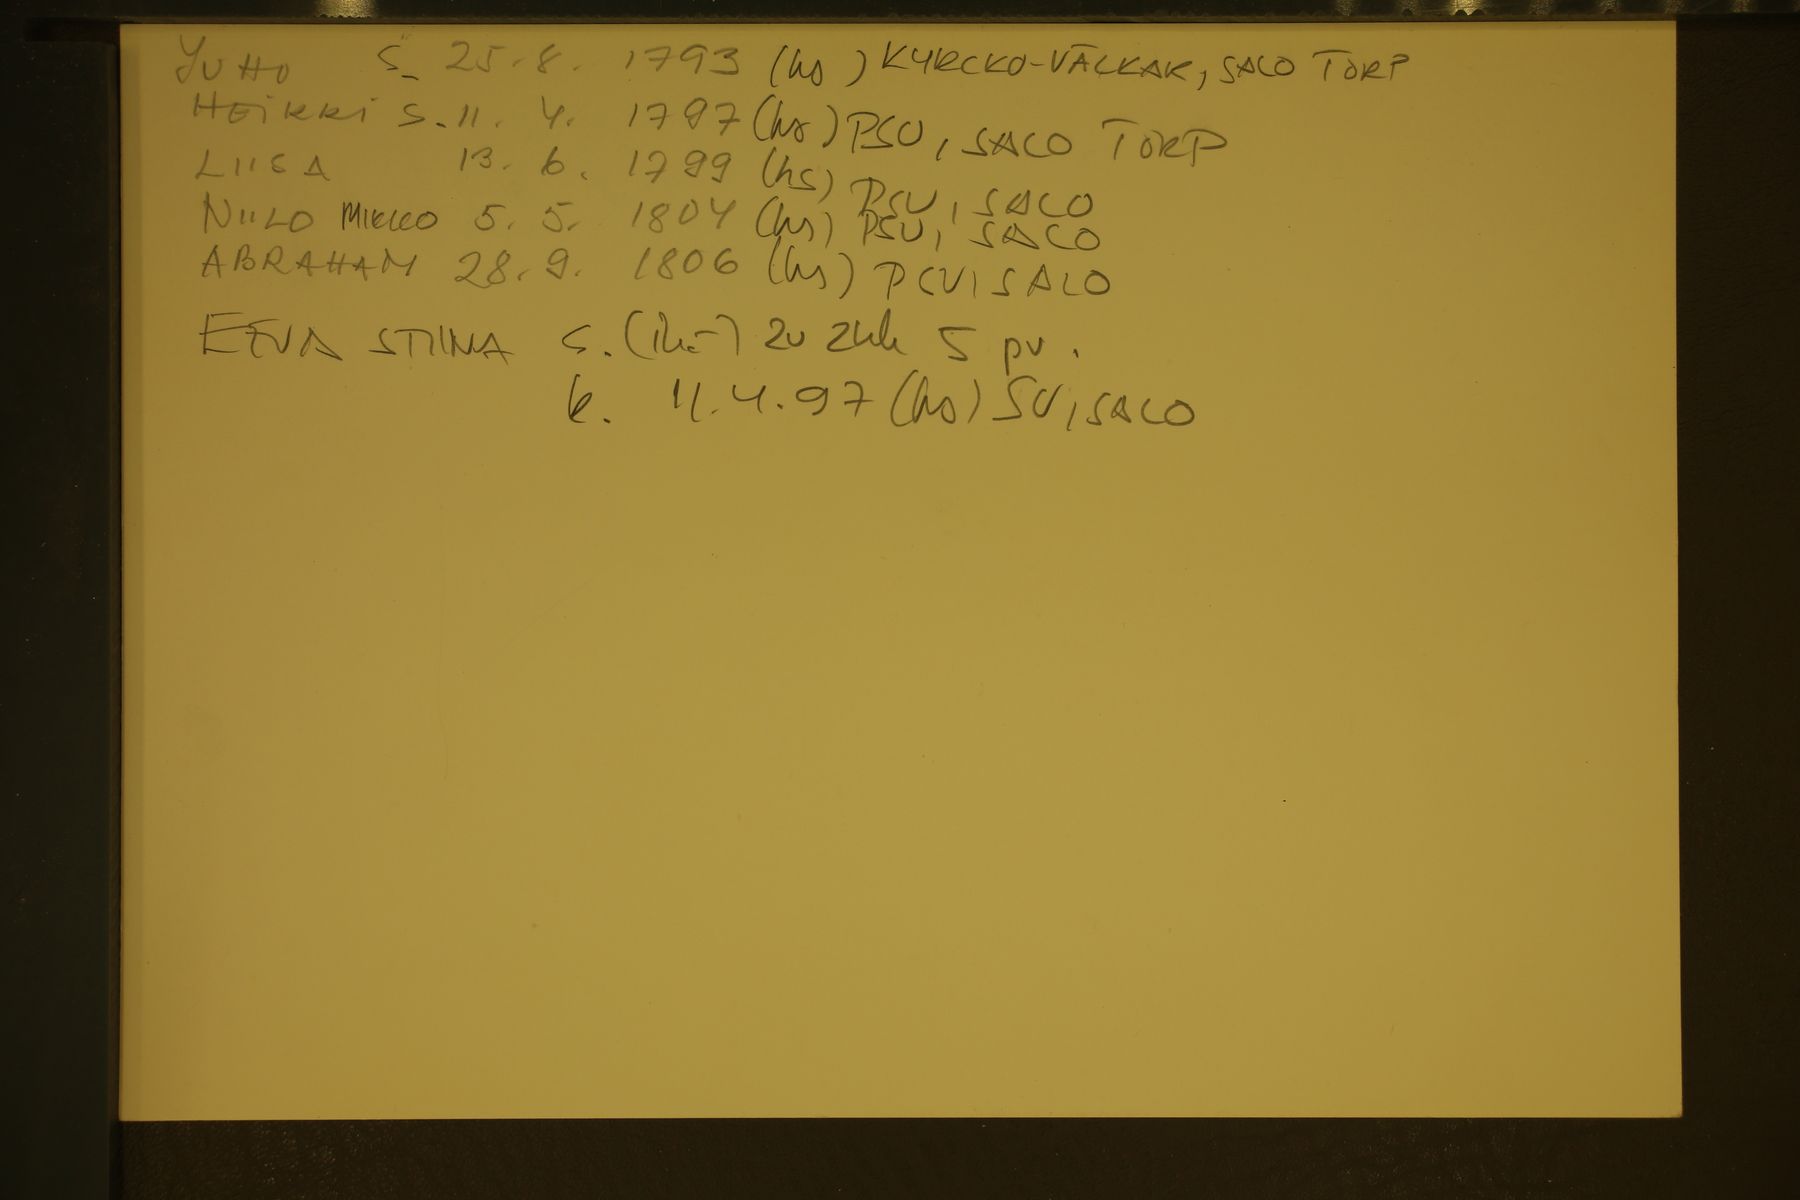 JUHO S. 25.8. 1793 (hs) KYRCKO-VÄLKAR, SALO TORP
HEIKKI S. 11. 4. 1797 (hs) PSU, SALO TORP
LIISA 13. 6. 1799 (hs) PSU, SALO
NIILO MIKKO 5. 5. 1804 (hs) PSU, SALO
ABRAHAM 28. 9. 1806 (hs) PSU, SALO
EEVA STIINA S. 2v 2kk 5 pv.
k. 11.4.97 (hs) SU, SALO